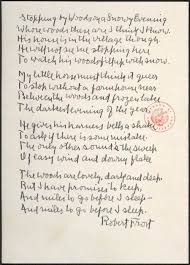 Stopping by Woods on a Snowy Evening
Whose woods these are I think I know.
His house is in the village though;
He will not see me stopping here
To watch his woods fill up with snow.
My little horse must think it queer
To stop without a farmhouse near
Between the woods and frozen lake
The darkest evening of the year.
He gives his harness bells a shake
To ask if there is some mistake.
The only other sound's the sweep
Of easy wind and downy flake.
The woods are lovely, dark and deep
But I have promises to keep,
And miles to go before I sleep—
And miles to go before I sleep.
Robert Frost